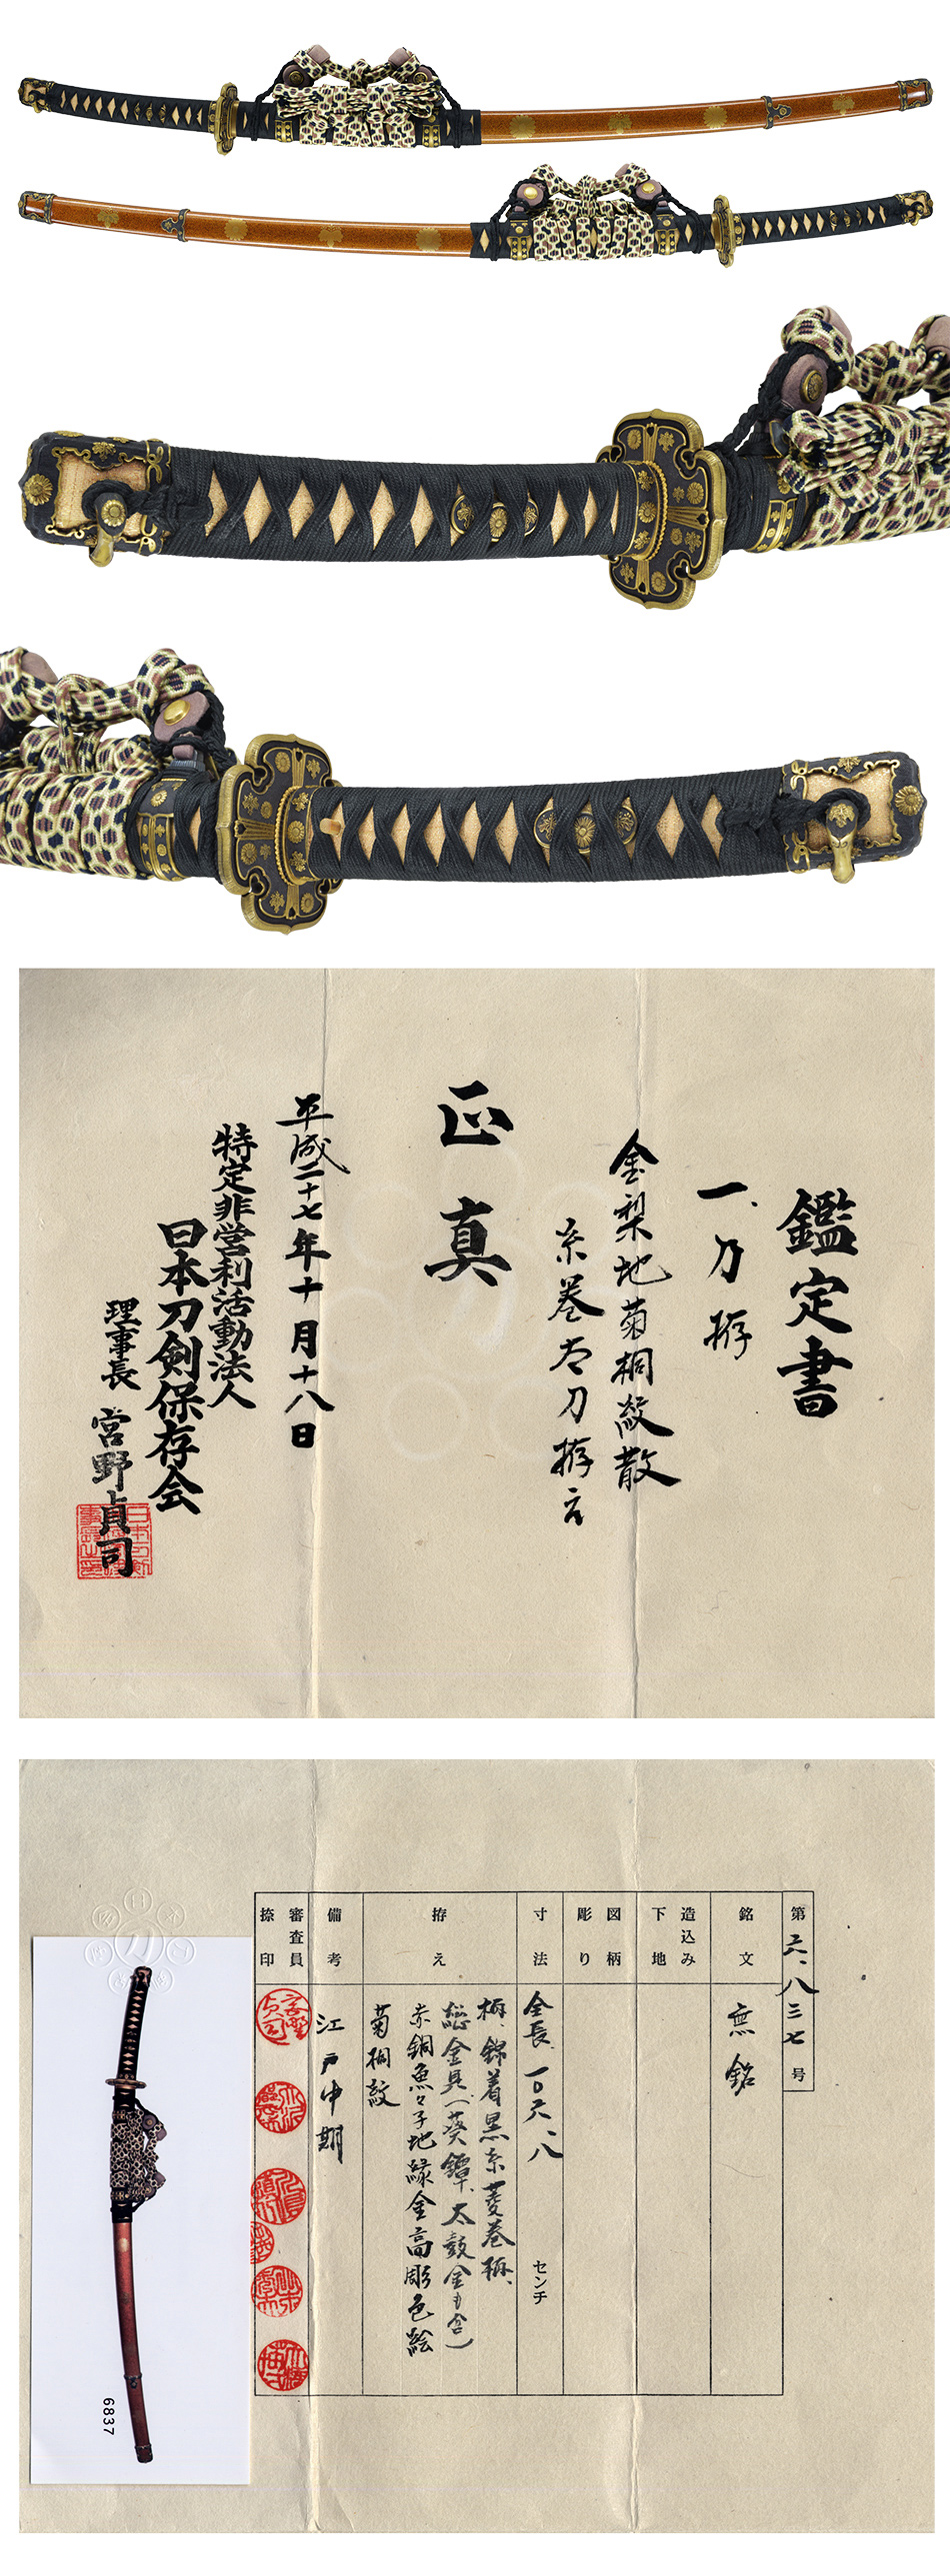 鑑定書
一、刀拵
金梨地菊桐紋散
糸巻太刀拵
正真
平成二十七年十月十八日
特定非営利活動法人
日本刀剣保存会
理事長 宮野貞司
第六、八三七号
銘文
無銘
造込み
下地
図柄
彫り
寸法
全長、一〇六、八 センチ
拵え
柄、錦着黒糸菱巻柄、
総金具、(葵鐔、太鼓金も含)
赤銅魚々子地縁金高彫色絵
菊桐紋
備考
江戸中期
審査員
捺印
6837